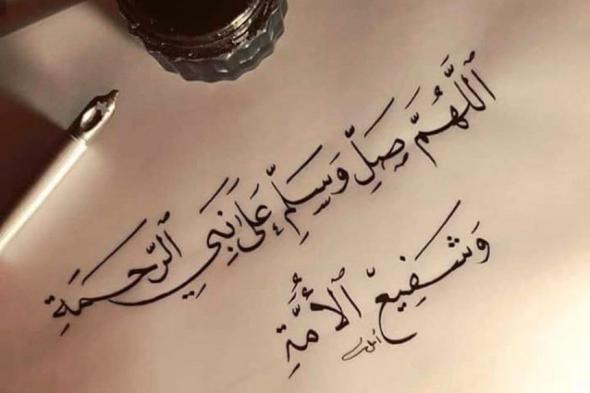 اَللَّهُمَّ صَلِّ وَسَلِّمْ عَلَى نَبِيِّ اَلرَّحْمَةِ
وَشَفِيعِ اَلْأُمَّةِ